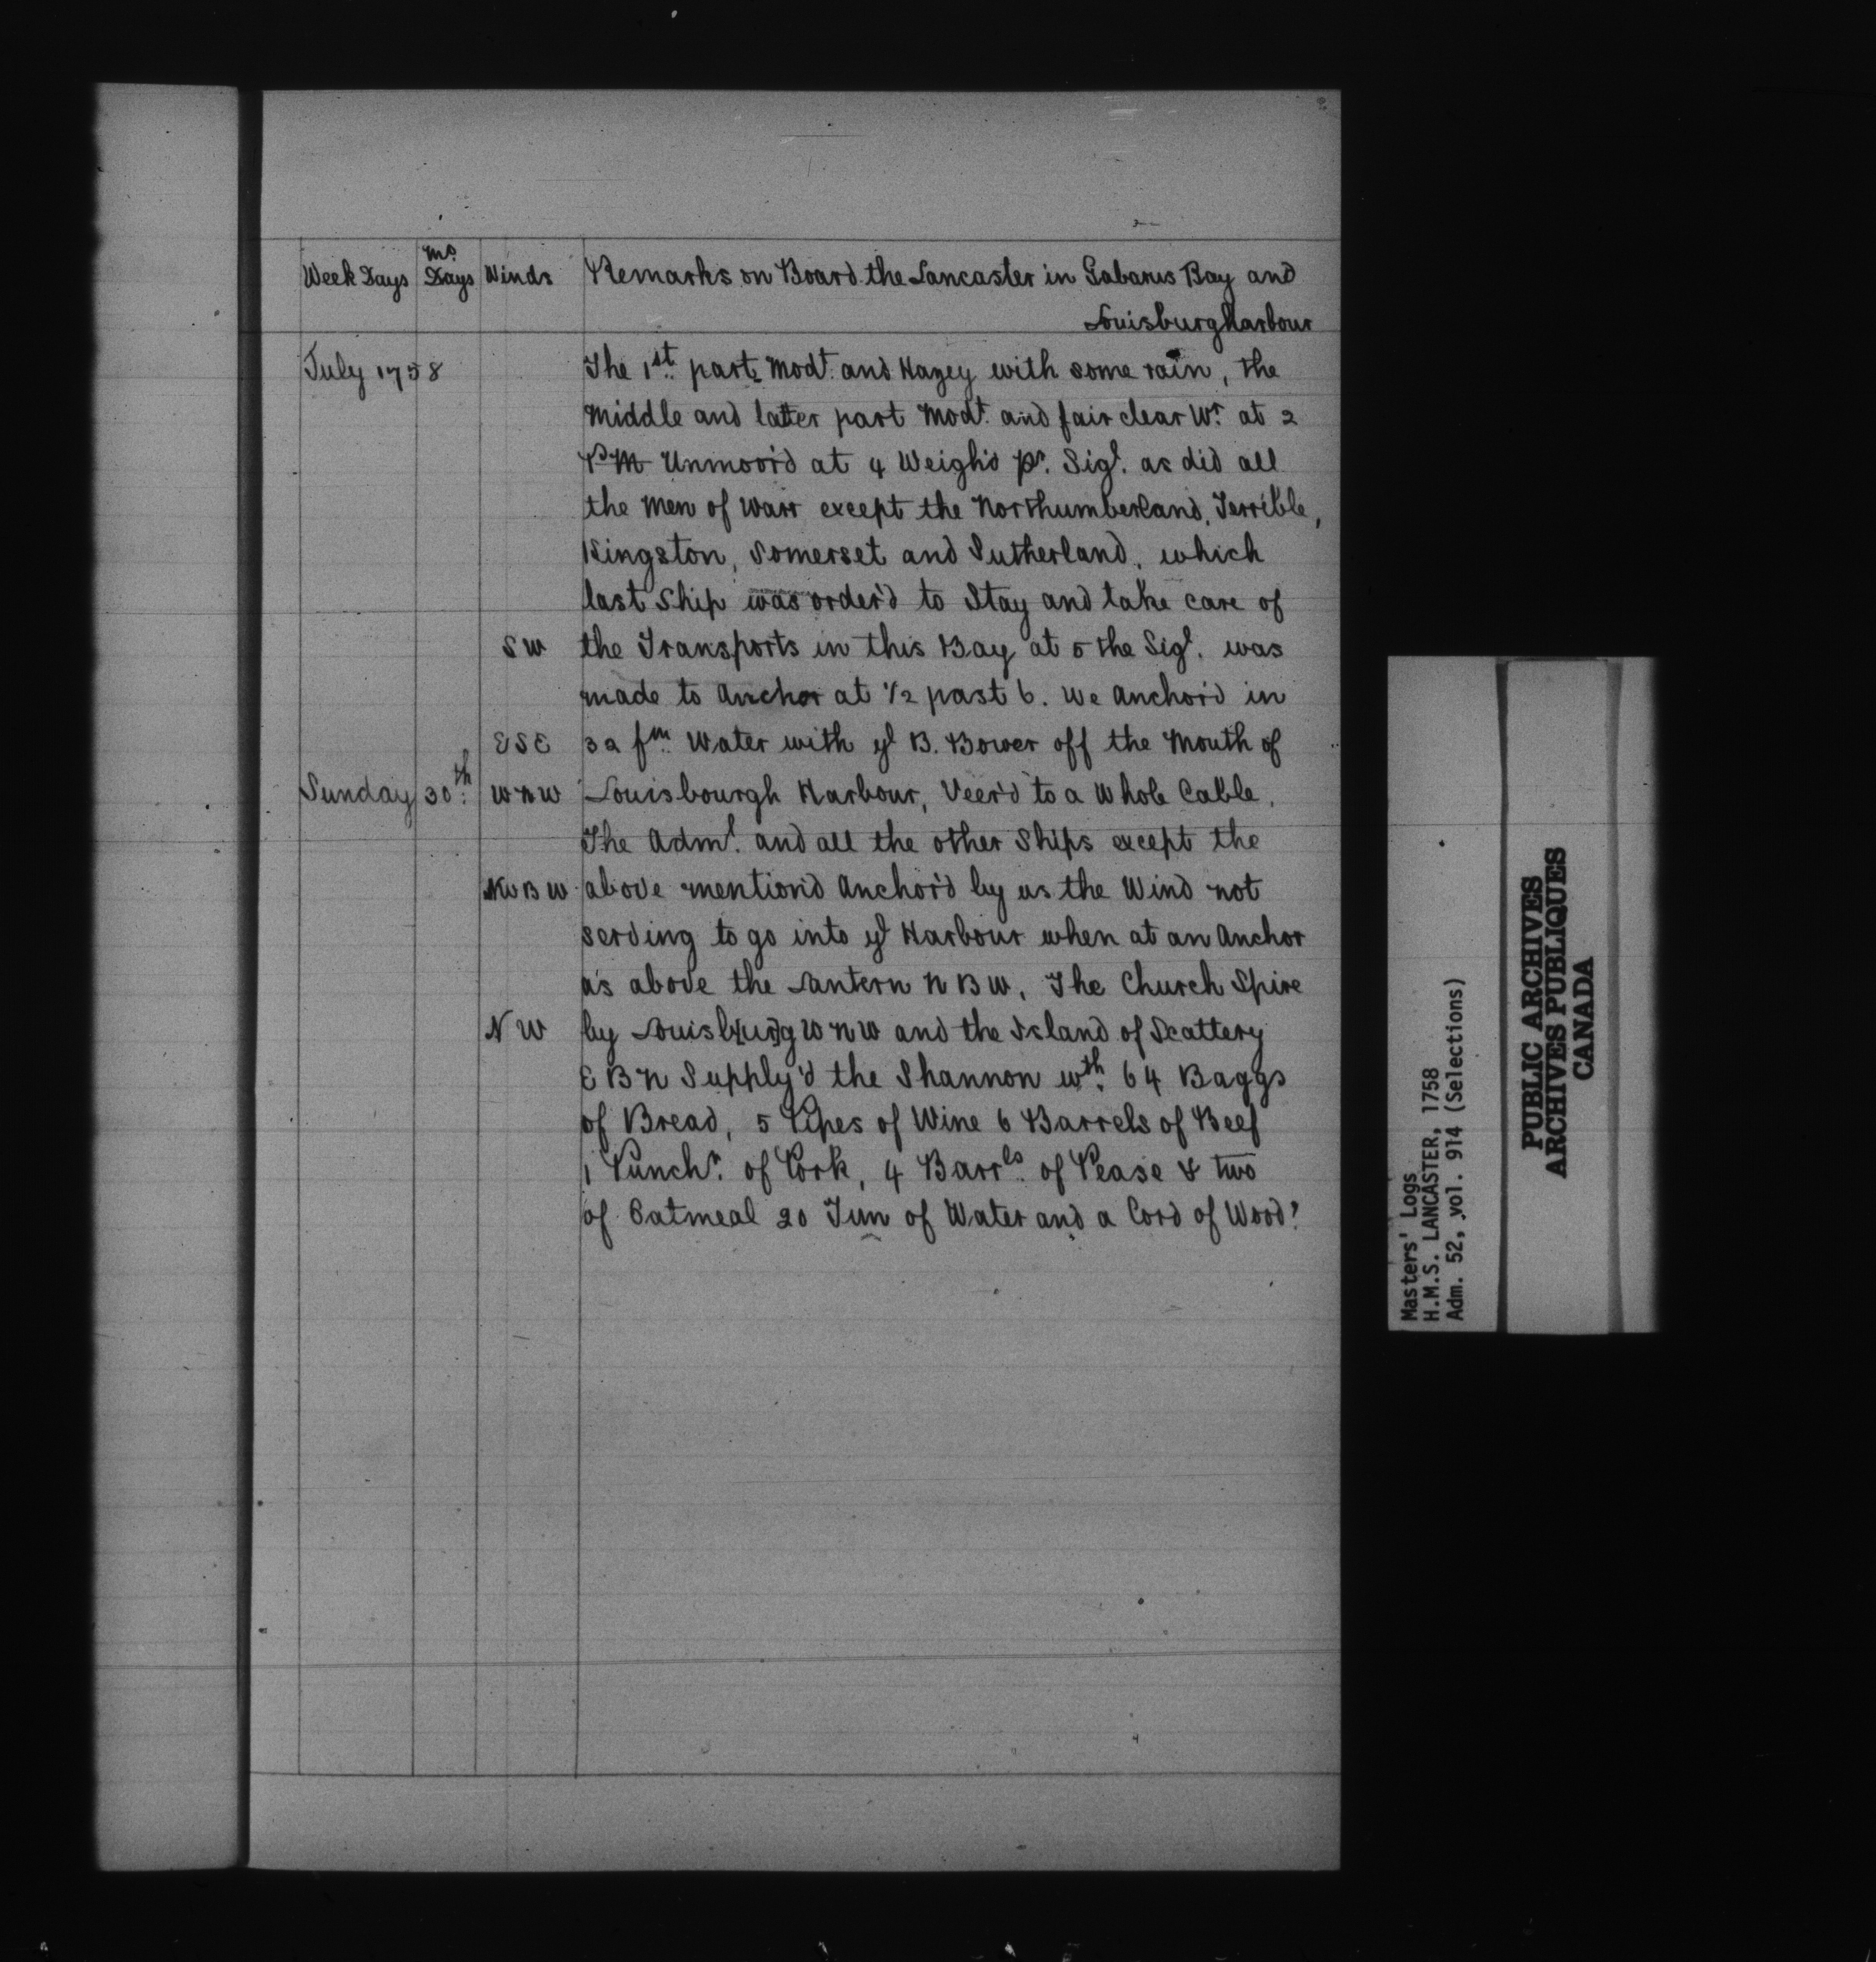 Week Days | Mo. Days | Winds | Remarks on Board the Lancaster in Gabarus Bay and
Louisburg harbour
July 1758 The 1st part Modt. and Hazey with some rain, the
middle and latter part Modt. and fair clear Wr. at 2
PM Unmoor'd at 4 Weigh'd pr. Sigl. as did all
the Men of Warr except the Northumberland, Terrible,
Kingston, Somerset and Sutherland, which
last Ship was order'd to Stay and take care of
SW the Transports in this Bay at 5 the Sigl. was
made to Anchor at 1/2 past 6. We Anchor'd in
ESE 32 fm. Water with ye B. Bower off the Mouth of
Sunday 30th: WNW Louisbourgh Harbour, Veer'd to a Whole Cable.
The Adml. and all the other Ships except the
NWBW above mention'd Anchor'd by us the Wind not
serving to go into ye Harbour when at an Anchor
as above the Lantern NBW. The Church Spire
NW by Louisb[ur]g WNW and the Island of Scattery
EBN Supply'd the Shannon wth. 64 Baggs
of Bread, 5 Pipes of Wine 6 Barrels of Beef
1 Punchn. of Pork, 4 Barrls. of Pease & two
of Oatmeal 20 Tun of Water and a Cord of Wood?
Masters' Logs
H.M.S. LANCASTER, 1758
Adm. 52, vol. 914 (Selections)
PUBLIC ARCHIVES
ARCHIVES PUBLIQUES
CANADA